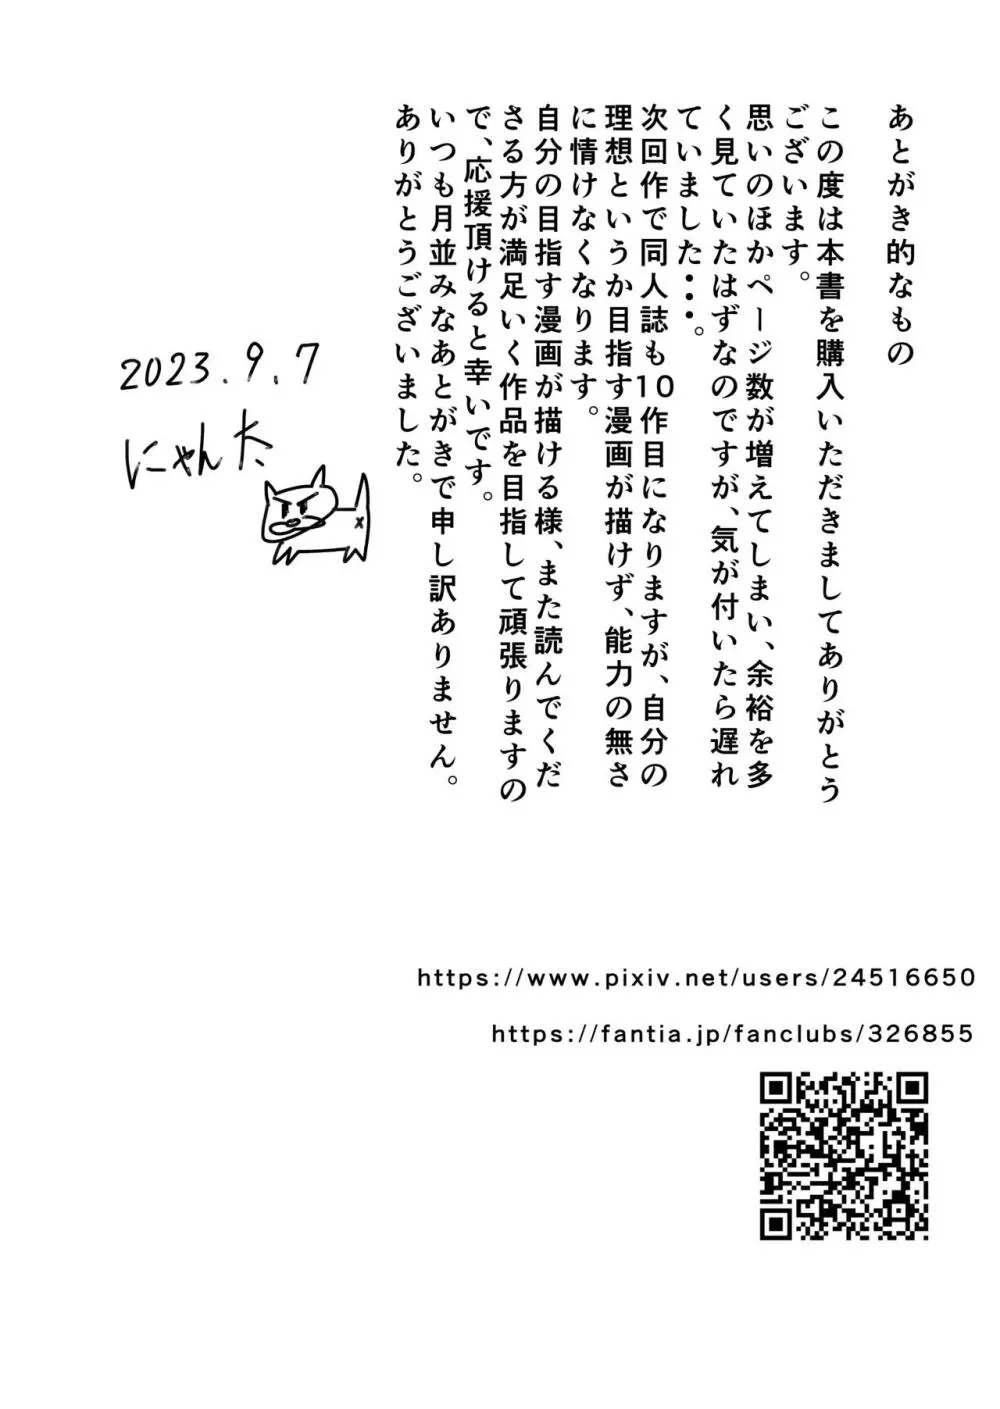 あとがき的なもの
この度は本書を購入いただきましてありがとう
ございます。
思いのほかページ数が増えてしまい、余裕を多
く見ていたはずなのですが、気が付いたら遅れ
ていました・・・。
次回作で同人誌も10作目になりますが、自分の
理想というか目指す漫画が描けず、能力の無さ
に情けなくなります。
自分の目指す漫画が描ける様、また読んでくだ
さる方が満足いく作品を目指して頑張りますの
で、応援頂けると幸いです。
いつも月並みなあとがきで申し訳ありません。
ありがとうございました。
2023.9.7
にゃんた
https://www.pixiv.net/users/24516650
https://fantia.jp/fanclubs/326855